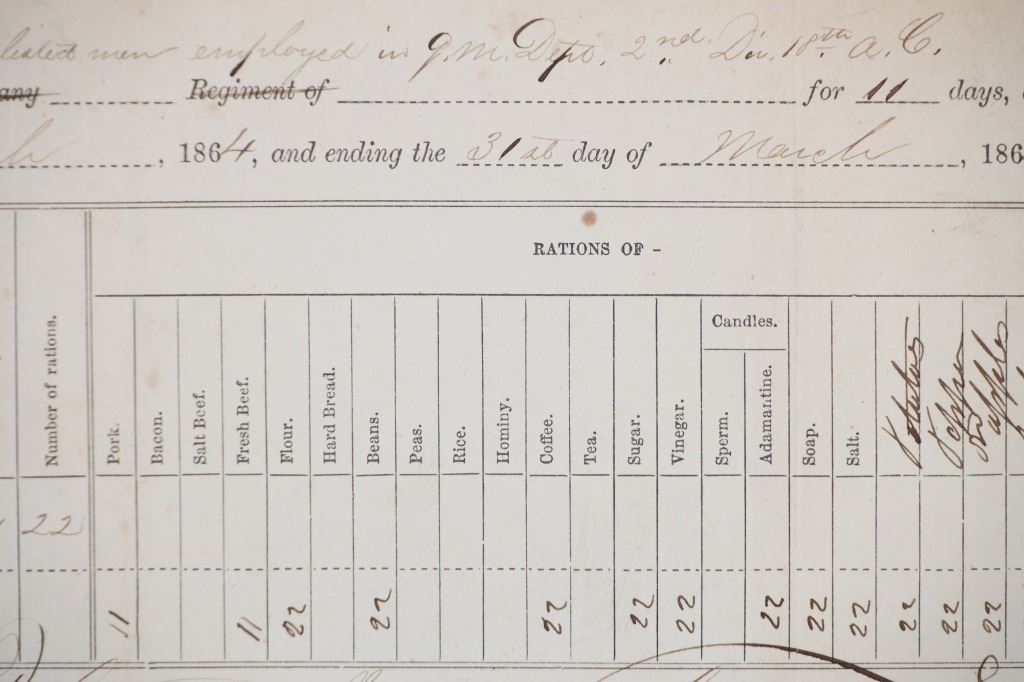 men employed in Q.M. Dept. 2nd. Div. 18th A.C.
any Regiment of for 11 days,
h , 1864, and ending the 31st day of March , 186
RATIONS OF -
Number of rations.
Pork.
Bacon.
Salt Beef.
Fresh Beef.
Flour.
Hard Bread.
Beans.
Peas.
Rice.
Hominy.
Coffee.
Tea.
Sugar.
Vinegar.
Candles.
Sperm.
Adamantine.
Soap.
Salt.
Potatoes
Pepper
apples
22
11 11 22 22 22 22 22 22 22 22 22 22 22